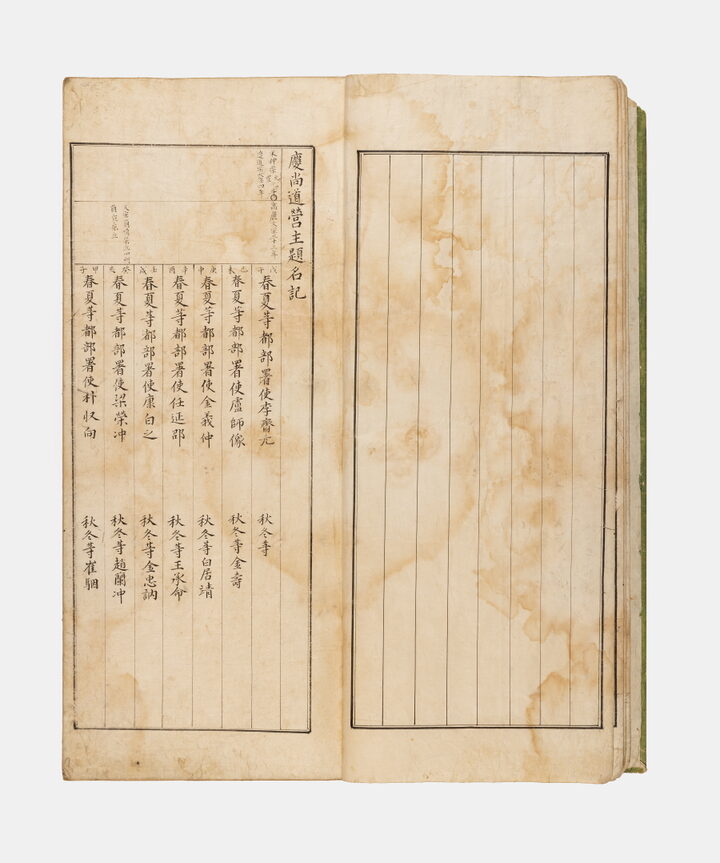 慶尚道營主題名記
高麗文宗三十二年
宋神宗元
戊午
春夏等都部署使李齊元
秋冬等
己未
春夏等都部署使盧師像
秋冬等金壽
庚申
春夏等都部署使金義仲
秋冬等白居靖
辛酉
春夏等都部署使任延郡
秋冬等王承命
壬戌
春夏等都部署使康白之
秋冬等金忠訥
癸亥
春夏等都部署使梁榮冲
秋冬等趙蘭冲
甲子
春夏等都部署使朴収向
秋冬等崔駰